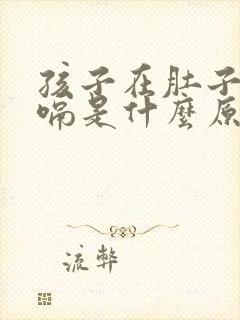 孩子在肚子
嗝是什麼原
流弊